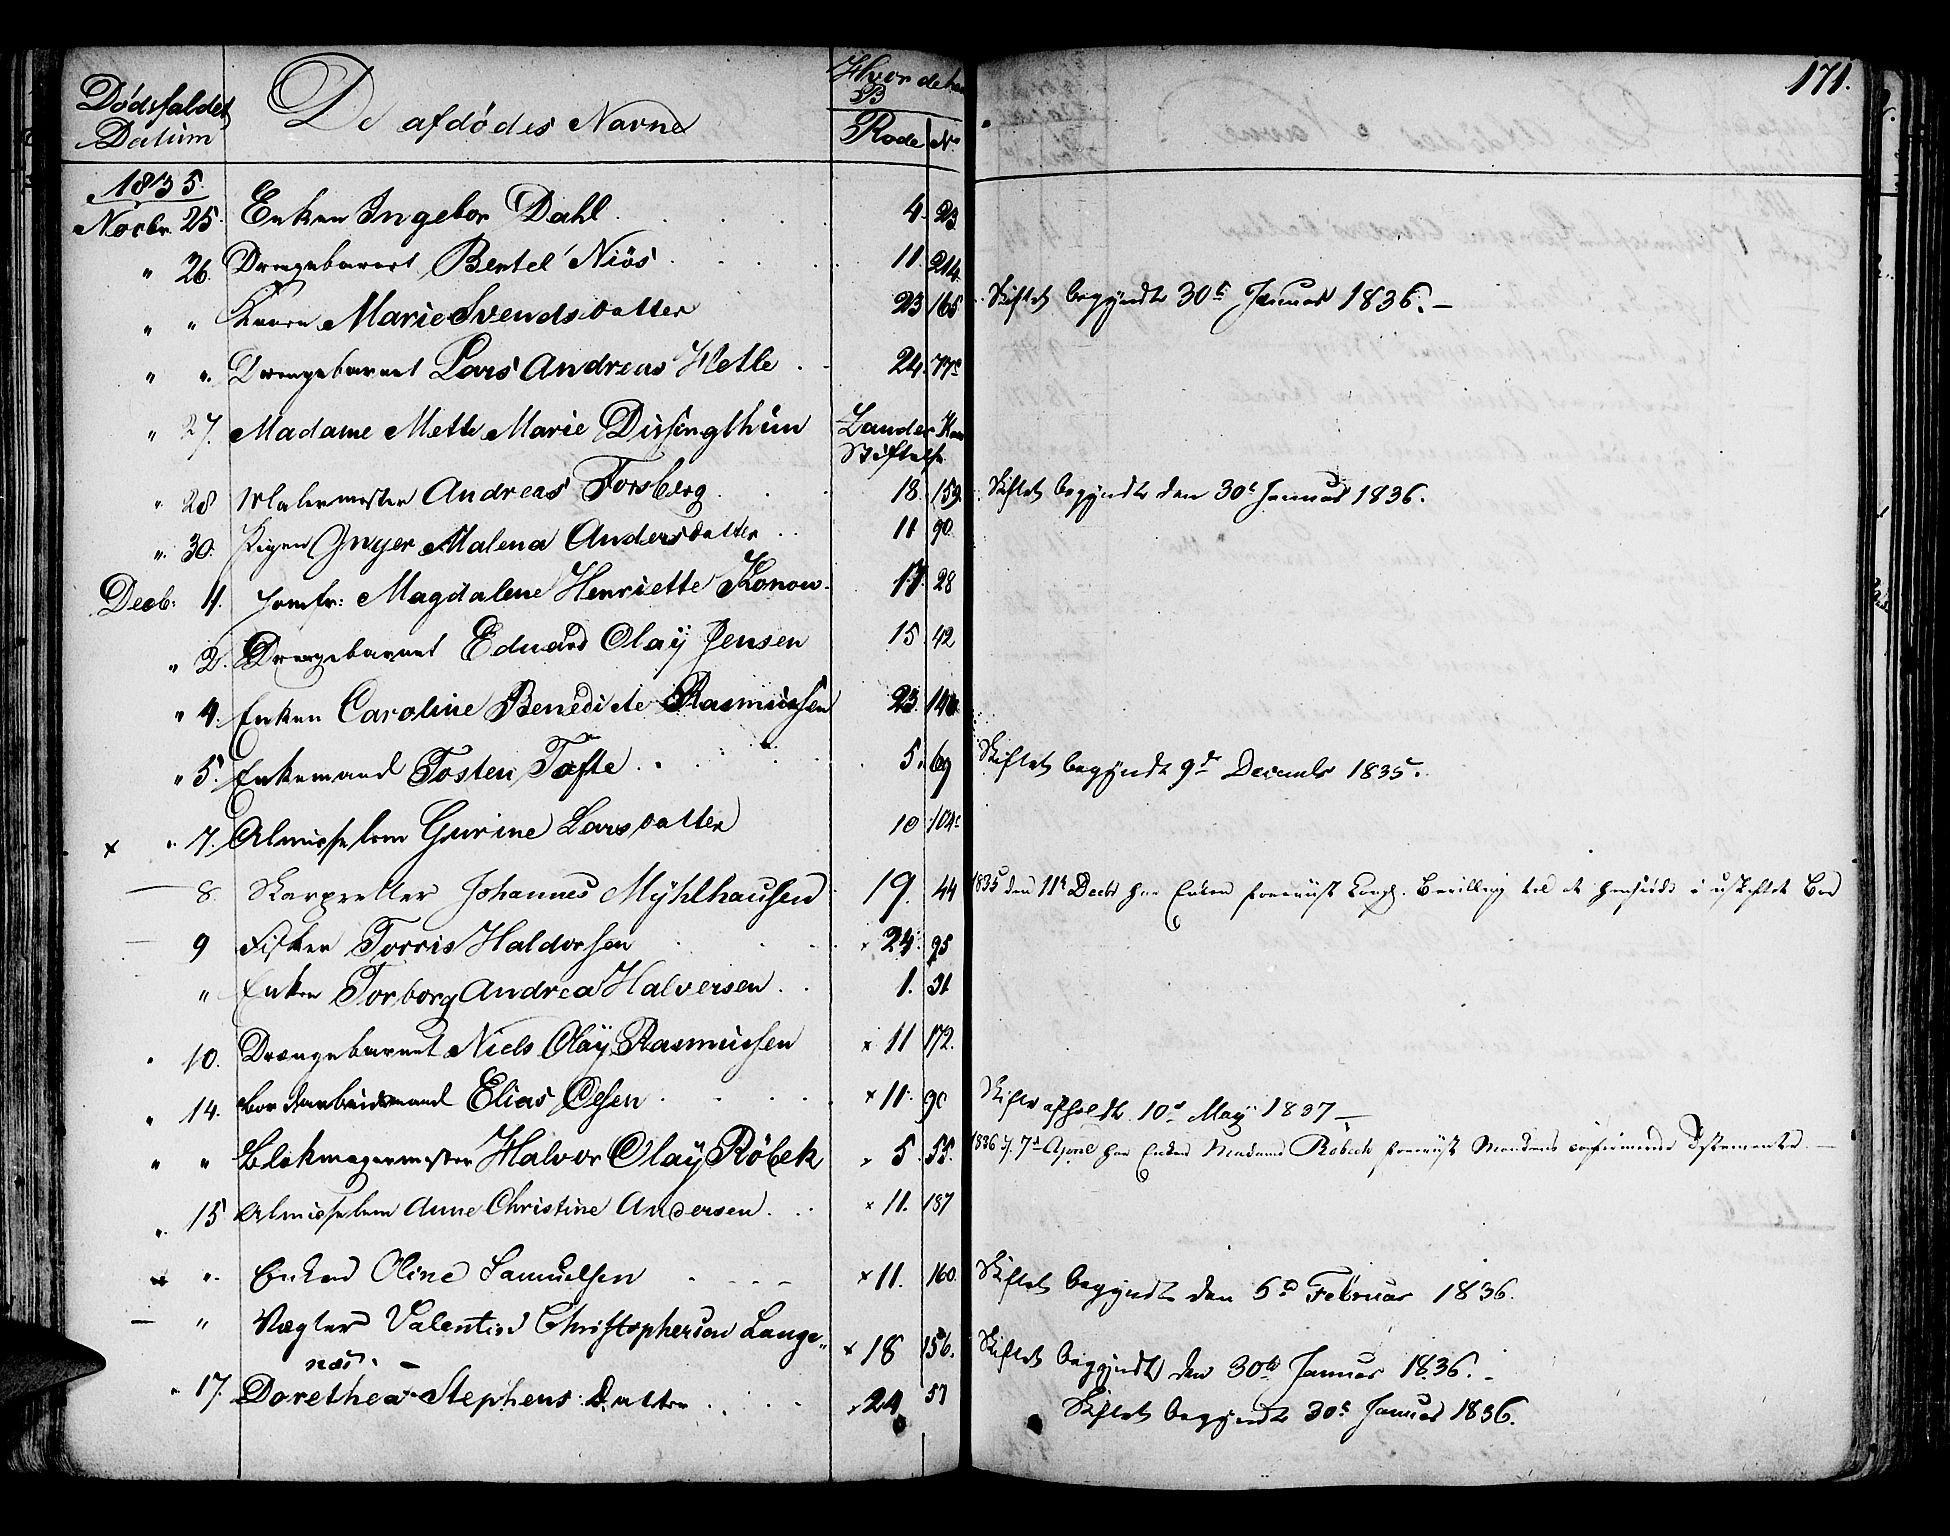 171.
Dødsfaldet Datum
De afdødes Navne
Hvor de boe
Rode No
1835.
Novbr. 25. Enken Ingebor Dahl 4. 23
" 26. Drengebarnet Bertel Niös 11. 214
" " Konen Marie Svendsdatter 23 165 Skiftet begyndt 30t Januar 1836. –
" " Drengebarnet Lars Andreas Hetle 24. 77c
" 27. Madame Mette Marie Dissingthun
Stiftelse
" 28 Malermester Andreas Forsberg 18. 159 Skiftet begyndt den 30t Januar 1836.
" 30. Pigen Inger Malena Andersdatter 11 90.
Decb: 1. Jomfr: Magdalene Henriette Konow 17. 28
" 2. Drengebarnet Eduard Olaÿ Jensen 15. 42
" 4. Enken Caroline Benedicte Rasmussen 23.
" 5. Enkemand Tosten Tofte 5. 69 Skiftet begyndt 9de Decembr 1835.
x " 7. Almisselem Gurine Larsdatter 10 104c
— 8. Skarpretter Johannes Mÿhlhausen 19. 44 1835 den 11t Decbr har Enken foreviist Kongl. Bevilling til at hensidde i uskiftet Boe
— 9 Fisker Torris Haldorsen x 24. 95
" Enken Torborg Andrea Halversen 1. 31
" 10. Drengebarnet Niels Olaÿ Rasmussen x 11 172.
" 14. Bordarbeidsmand Elias Olsen x 11. 90 Skifte afholdt 10d Maÿ 1837 —
" " Blokmagermester Halvor Olaÿ Röbek 5. 55. 1836 d. 7d April har Enken Madame Robech foreviist Mandens confirmerede Testamente. —
" 15 Almisselem Anne Christine Andersen x 11. 187
" " Enken Oline Samuelsen x 11. 160. Skiftet begyndt den 5d Februar 1836.
— " Vægter Valentin Christophersen Lange-
næs. – x 18 156. Skiftet begyndt den 30te Januar 1836. –
" 17. Dorethea Stephens Datter 24 57 Skiftet begyndt 30t Januar 1836.